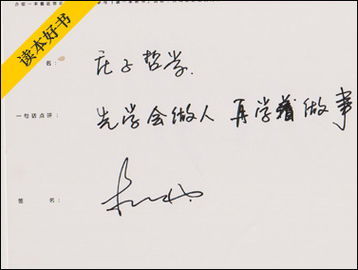 读本好书
名：庄子哲学
一句话点评：先学会做人 再学着做事
签名：